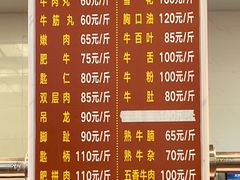 牛肉丸 60元/斤
牛筋丸 60元/斤
嫩肉 65元/斤
肥牛 75元/斤
匙仁 80元/斤
双层肉 85元/斤
吊龙 90元/斤
脚趾 90元/斤
匙柄 110元/斤
肥拼肉 110元/斤
胸口油 120元/斤
牛百叶 85元/斤
牛舌 100元/斤
牛粉 100元/斤
牛肚 80元/斤
熟牛腩 65元/斤
熟牛杂 70元/斤
五香牛肉 100元/斤